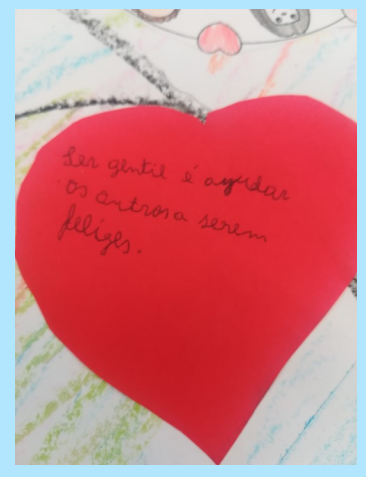 Ser gentil é ayudar
os outros a serem
felizes.